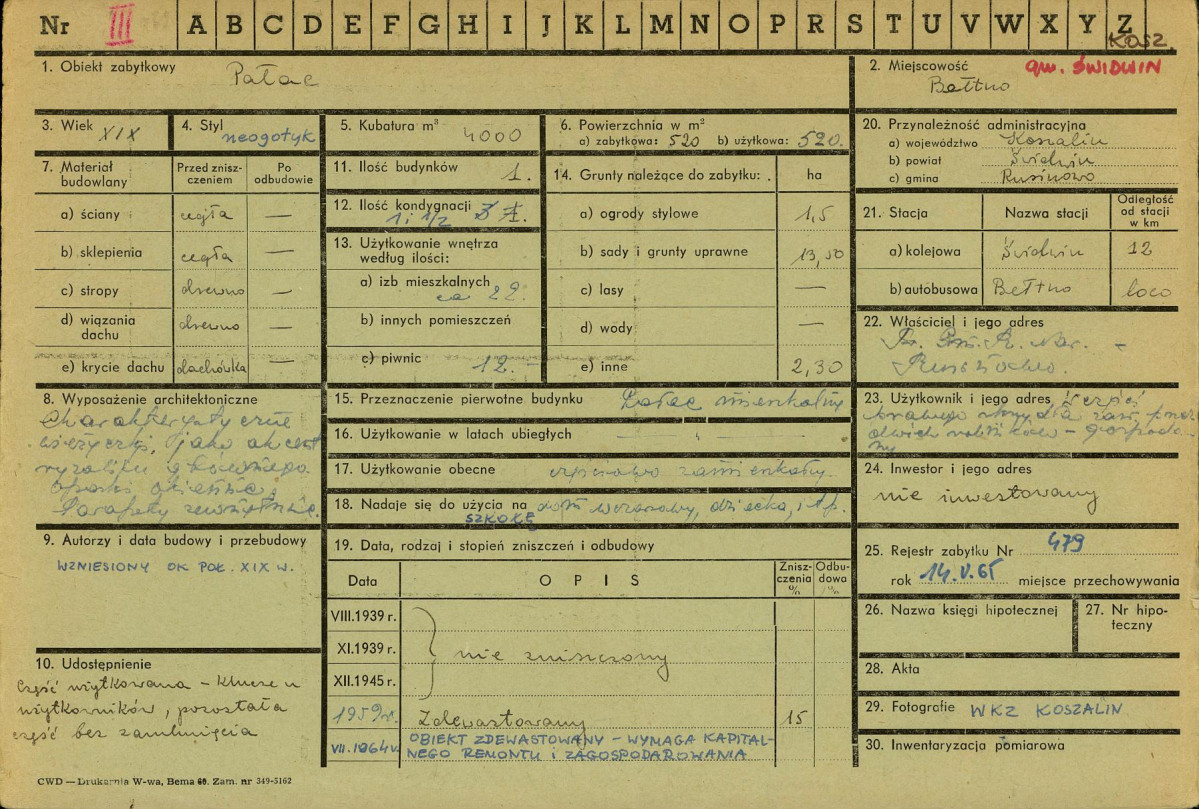 Nr III A B C D E F G H I J K L M N O P R S T U V W X Y Z
KOSZ.
1. Obiekt zabytkowy Pałac
2. Miejscowość gm. ŚWIDWIN
Bełtno
3. Wiek XIX
4. Styl neogotyk
5. Kubatura m³ 4000
6. Powierzchnia w m²
a) zabytkowa: 520 b) użytkowa: 520.
20. Przynależność administracyjna
a) województwo Koszalin
b) powiat Świdwin
c) gmina Rusinowo
7. Materiał budowlany
Przed znisz-
czeniem
Po
odbudowie
a) ściany cegła —
b) sklepienia cegła —
c) stropy drewno —
d) wiązania
dachu drewno —
e) krycie dachu dachówka —
11. Ilość budynków 1.
12. Ilość kondygnacji
1 i 1/2
13. Użytkowanie wnętrza
według ilości:
a) izb mieszkalnych
ca 22.
b) innych pomieszczeń
c) piwnic 12.
14. Grunty należące do zabytku: . ha
a) ogrody stylowe 1,5
b) sady i grunty uprawne 13,50
c) lasy —
d) wody —
e) inne 2,30
21. Stacja Nazwa stacji Odległość
od stacji
w km
a) kolejowa Świdwin 12
b) autobusowa Bełtno loco
22. Właściciel i jego adres
8. Wyposażenie architektoniczne
Charakterystyczne
wieżyczki, jako akcent
ryzalitu głównego.
opaski okienne,
Parapety zewnętrzne.
15. Przeznaczenie pierwotne budynku Pałac mieszkalny
16. Użytkowanie w latach ubiegłych — — —
17. Użytkowanie obecne częściowo zamieszkały.
18. Nadaje się do użycia na dom wczasowy, dziecka, i t p.
SZKOŁĘ
23. Użytkownik i jego adres W części
24. Inwestor i jego adres
nie inwestowany
9. Autorzy i data budowy i przebudowy
WZNIESIONY OK POŁ. XIX W.
19. Data, rodzaj i stopień zniszczeń i odbudowy
Data OPIS Znisz-
czenia
% Odbu-
dowa
%
VIII.1939 r.
XI.1939 r. nie zniszczony
XII.1945 r.
1959 r. Zdewastowany 15
VII.1964 r. OBIEKT ZDEWASTOWANY – WYMAGA KAPITAL-
NEGO REMONTU i ZAGOSPODAROWANIA
25. Rejestr zabytku Nr 479
rok 14.V.65 miejsce przechowywania
26. Nazwa księgi hipotecznej
27. Nr hipo-
teczny
10. Udostępnienie
Część użytkowana – klucze u
użytkowników, pozostała
część bez zamknięcia
28. Akta
29. Fotografie WKZ KOSZALIN
30. Inwentaryzacja pomiarowa
CWD — Drukarnia W-wa, Bema 60. Zam. nr 349-5162